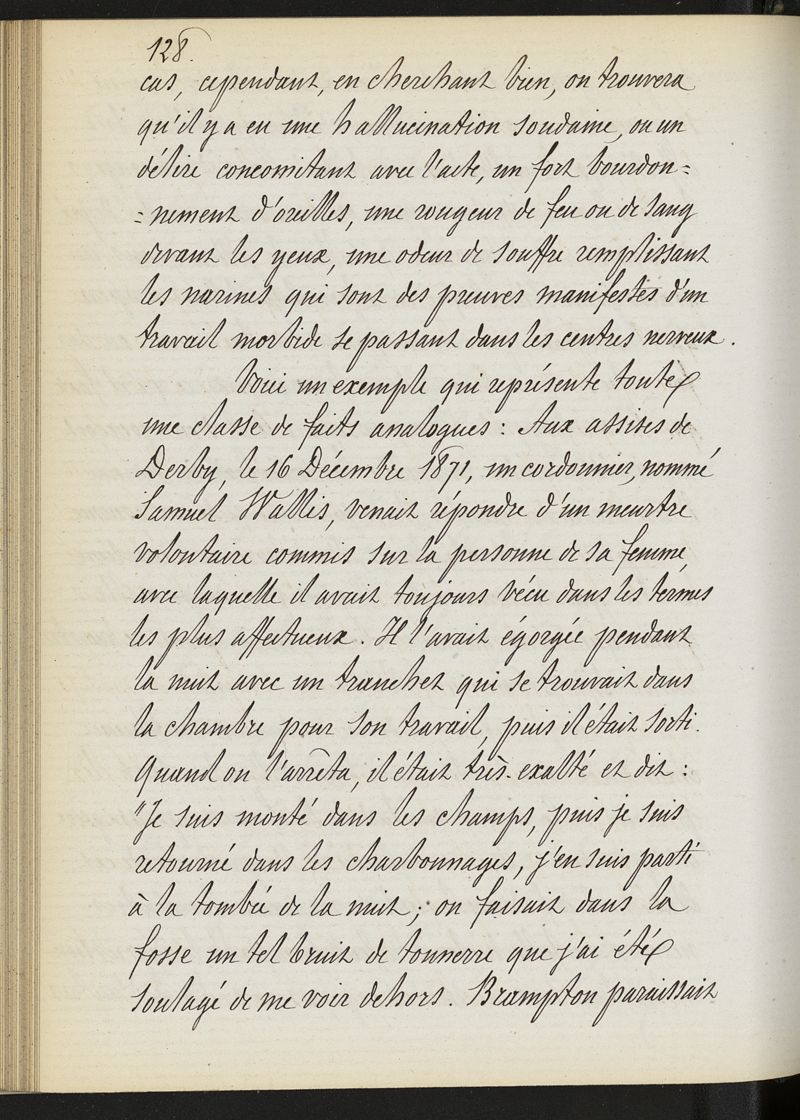 128.
cas, cependant, en cherchant bien, on trouvera
qu'il y a eu une hallucination soudaine, ou un
délire concomitant avec l'acte, un fort bourdon=
=nement d'oreilles, une rougeur de feu ou de sang
devant les yeux, une odeur de souffre remplissant
les narines qui sont des preuves manifestes d'un
travail morbide se passant dans les centres nerveux.
Voici un exemple qui représente toute
une classe de faits analogues : Aux assises de
Derby, le 16 Décembre 1871, un cordonnier, nommé
Samuel Wallis, venait répondre d'un meurtre
volontaire commis sur la personne de sa femme,
avec laquelle il avait toujours vécu dans les termes
les plus affectueux. Il l'avait égorgée pendant
la nuit avec un tranchet qui se trouvait dans
la chambre pour son travail, puis il était sorti.
Quand on l'arrêta, il était très-exalté et dit :
"Je suis monté dans les champs, puis je suis
retourné dans les charbonnages, j'en suis parti
à la tombée de la nuit ; on faisait dans la
fosse un tel bruit de tonnerre que j'ai été
soulagé de me voir dehors. Brampton paraissait